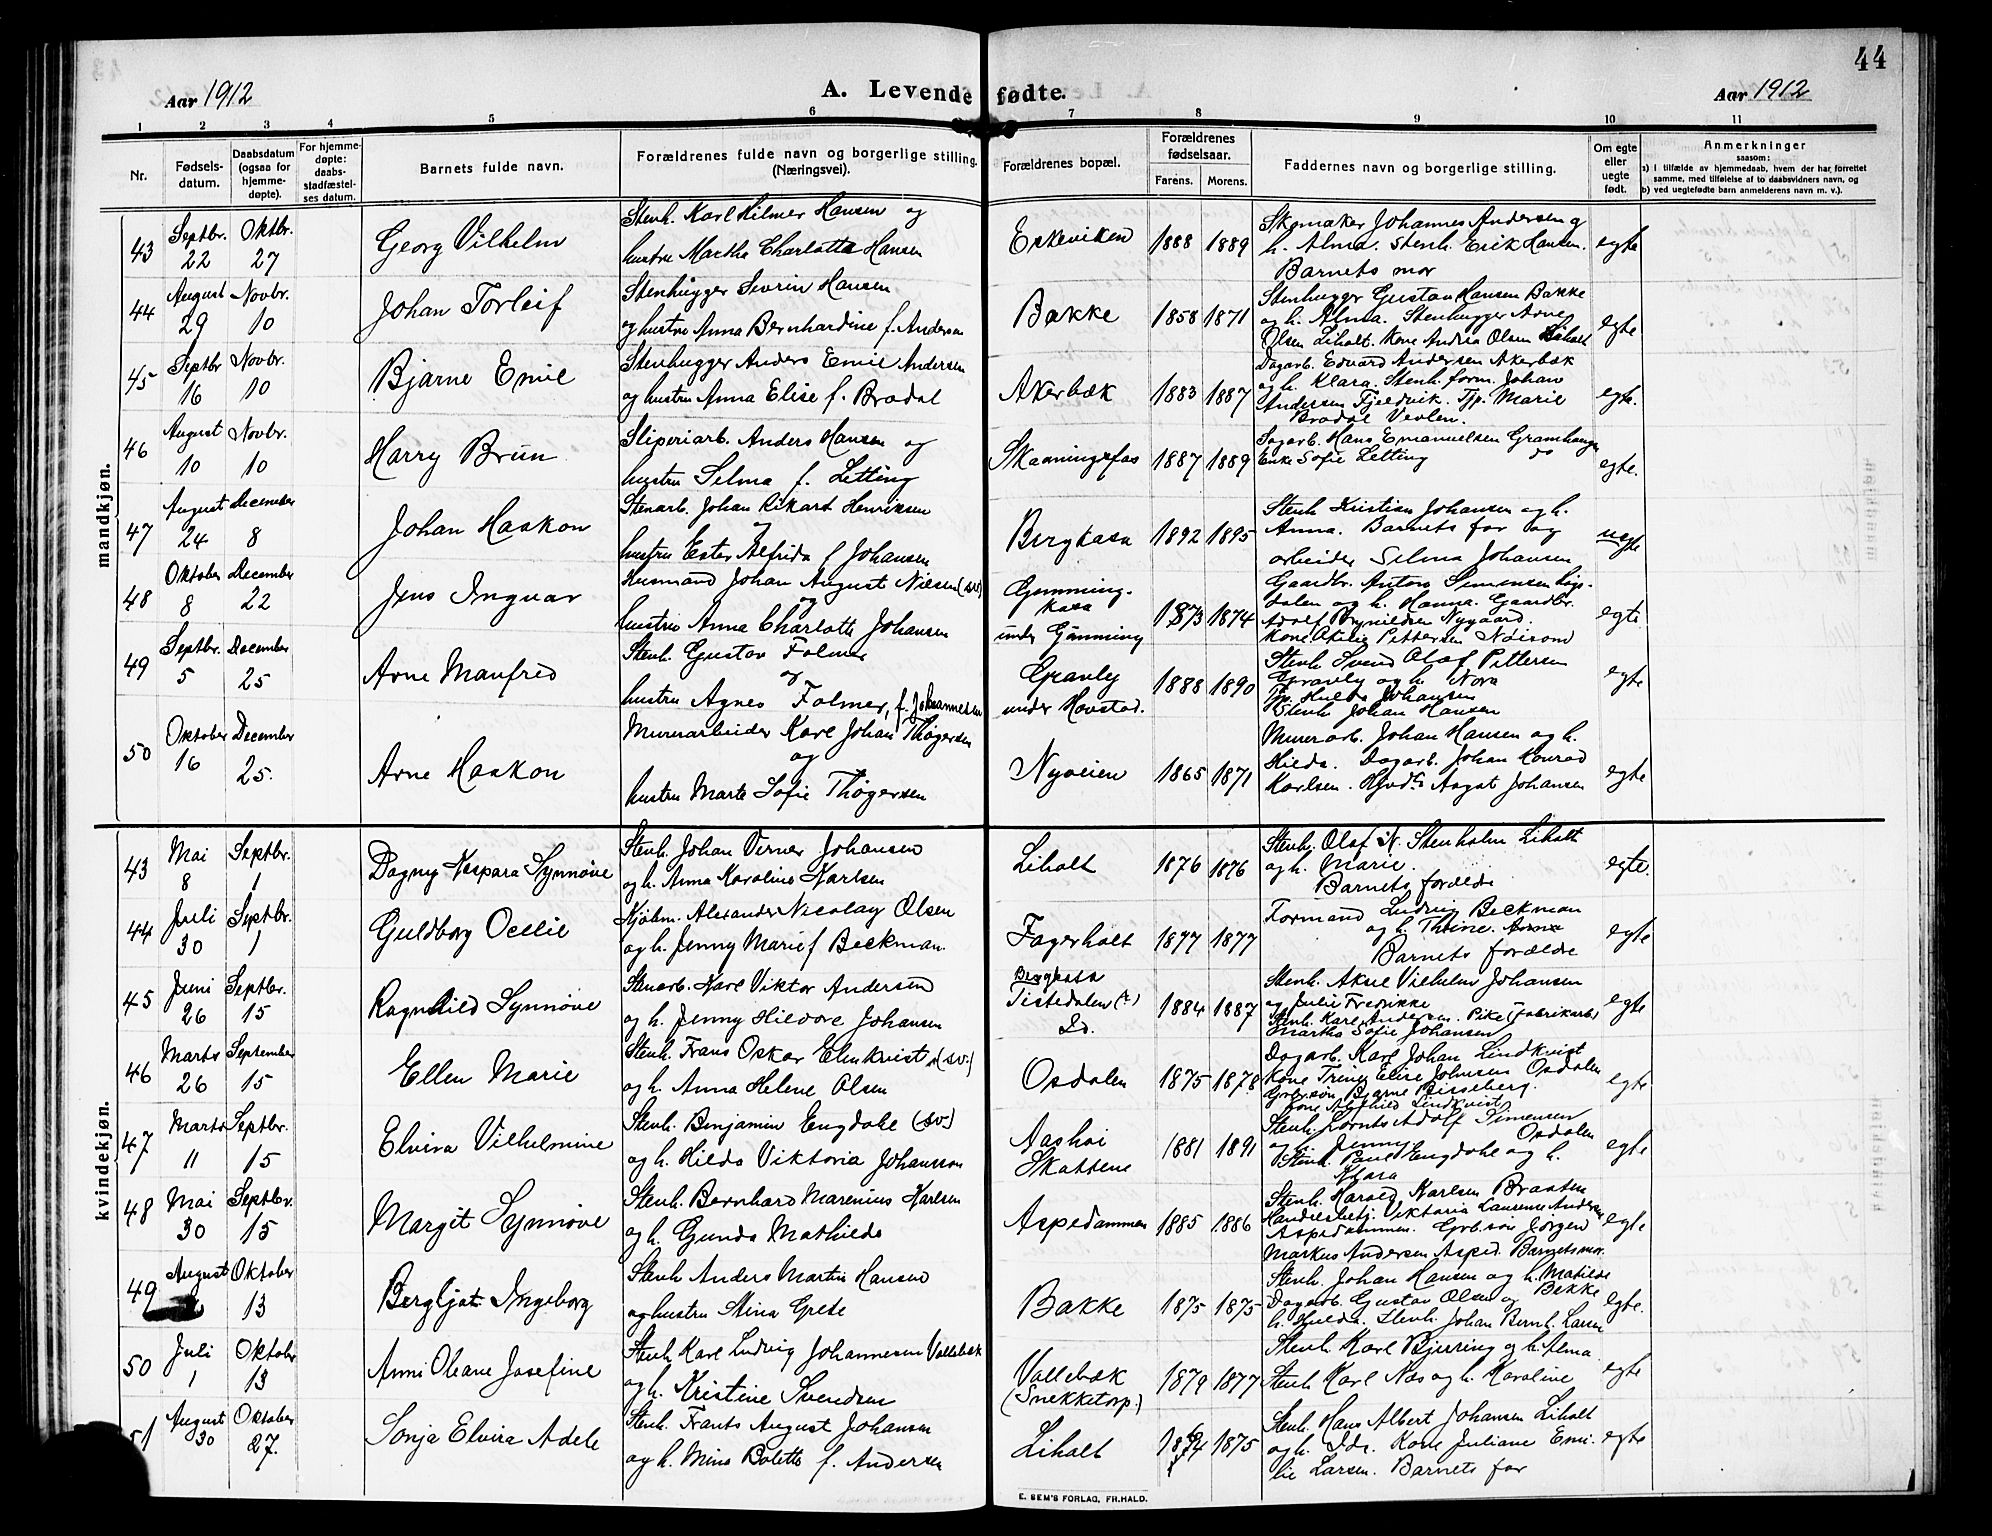 44
Aar 1912
A. Levende fødte.
Aar 1912
1 2 3 4 5 6 7 8 9 10 11
Nr.
Fødsels-
datum.
Daabsdatum
(ogsaa for
hjemme-
døpte).
For hjemme-
døpte:
daabs-
stadfæstel-
ses datum.
Barnets fulde navn.
Forældrenes fulde navn og borgerlige stilling.
(Næringsvei).
Forældrenes bopæl.
Forældrenes
fødselsaar.
Farens. Morens.
Faddernes navn og borgerlige stilling.
Om egte
eller
uegte
født.
Anmerkninger
saasom:
a) I tilfælde av hjemmedaab, hvem der har forrettet
samme, med tilføielse af to daabsvidners navn, og
b) ved uegtefødte barn anmelderens navn m. v.).
mandkjøn.
43
Septbr.
22
Oktbr.
27
Georg Vilhelm
Stenh. Karl Hilmer Hansen og
hustru Martha Charlotte Hansen
Eskeviken
1888 1889
Skomaker Johannes Andersen og
h. Alma. Stenh. Erik Hansen.
Barnets mor
egte
44
August
29
Novbr.
10
Johan Torleif
Stenhugger Sevrin Hansen
og hustru Anna Bernhardine f. Andersen
Bakke
1858 1871
Stenhugger Gustav Hansen Bakke
og h. Alma. Stenhugger Arne
Olsen Liholt. Kone Andrea Olsen Liholt
egte
45
Septbr
16
Novbr.
10
Bjarne Emil
Stenhugger Anders Emil Andersen
og hustru Anna Elise f. Brodal
Akerbæk
1883 1887
Dagarb. Edvard Andersen Akerbæk
og h. Klara. Stenh. form. Johan
Andersen Fjeldvik. Tjp. Marie
Brodal Vevlen.
egte.
46
August
10
Novbr.
10
Harry Brun
Sliperiarb. Anders Hansen og
hustru Selma f. Letting
Skaaningsfos
1887 1889
Sagarb. Hans Emanuelsen Gramhaugen
Enke Sofie Letting do
egte.
47
August
24
December
8
Johan Haakon
Stenarb. Johan Rikard Henriksen
og
hustru Ester Alfrida f Johansen
Bergkasa
1892 1895
Stenh Kristian Johansen og h.
Anna. Barnets far og
arbeider Selma Johansen
uegte
48
Oktober
8
December
22
Jens Ingvar
Husmand Johan August Nilsen (sv)
og
hustru Anna Charlotte Johansen
Gjømming-
kasa
under Gjømming
1873 1874
Gaardbr. Anton Simensen Ligs-
dalen og h. Hanna. Gaardbr.
Adolf Brynildsen Nygaard.
Kone Otilie Pettersen
egte.
49
Septbr.
5
December
25
Arne Manfred
Stenh. Gustav Folmer
og
hustru Agnes Folmer, f. Johannesen
Granly
under Hovstad.
1888 1890
Stenh Svend Olaf Pettersen
Granly og h. Nora
Tjp. Hulda Johansen
Stenh Johan Hansen
egte
50
Oktober
16
December
25.
Arne Haakon
Murerarbeider Karl Johan Thøgersen
og
hustru Marte Sofie Thøgersen
Nyveien
1865 1871
Murerarb. Johan Hansen og h.
Hilda. Dagarb. Johan Konrad
Karlsen. Johansen
egte
kvindekjøn.
43
Mai
8
Septbr.
1
Dagny Kaspara Synnøve
Stenh. Johan Verner Johansen
og h. Anna Karoline Karlsen
Liholt
1876 1876
Stenh. Olaf N. Stenholm Liholt
og h. Marie.
Barnets forældre
egte.
44
Juli
30
Septbr.
1
Guldborg Ocelie
Kjølm. Alexander Nicolay Olsen
og h. Jenny Marie f Beckman.
Fagerholt
1877 1877
Formand Ludvig Beckman
og h. Thrine.
Barnets forældre
egte
45
Juni
26
Septbr.
15
Ragnhild Synnøve
Stenarb. Karl Viktor Andersen
og h. Jenny Hildore Johansen
Bergkasa
Tistedalen (?)
Id.
1884 1887
Stenh. Aksel Vilhelm Johansen
og Julie Fredrikke
Stenh. Karl Andersen. Pike (Fabrikarb)
Martha Sofie Johansen
egte
46
Marts
26
September
15
Ellen Marie
Stenh. Frans Oskar Elmkvist (sv.)
og h. Anna Helene Olsen
Opdalen
1875 1878
Dagarb. Karl Johan Lindkvist
Kone Trine Elise Johnsen Opdalen
Grbr.søn Bjarne Bisseberg.
Lindkvist
egte
47
Marts
11
Septbr.
15
Elvira Vilhelmine
Stenh. Benjamin Engdahl (sv.)
og h. Hilda Viktoria Johansson
Aashøi
Skattene
1881 1891
Stenh. Lornts Adolf Simensen
og h. Jenny Opdalen
Stenh. Paul Engdahl og h.
Klara
egte
48
Mai
30
Septbr.
15
Margit Synnøve
Stenh. Bernhard Marenius Karlsen
og h. Gunda Mathilde
Aspedammen
1885 1886
Stenh. Harold Karlsen Braaten
Handelsbetj. Viktoria Laurense Andersen
Aspedammen. Grb.søn Jørgen
Markus Andersen Asped. Barnets mor.
egte
49
August
Oktober
13
Bergljot Ingeborg
Stenh Anders Martin Hansen
og hustru Stina Grete
Bakke
1875 1875
Stenh. Johan Hansen og h. Matilde
Dagarb. Gustav Olsen og Bekke
h. Hulda. Stenh. Johan Bernh. Larsen
egte.
50
Juli
1
Oktober
13
Anni Oleane Josefine
Stenh Karl Ludvig Johannesen Vallebæk
og h. Kristine Svendsen
Vallebæk
(Snekketorp.)
1879 1877
Stenh. Karl Bjurring og h. Alma
Stenh Karl Næs og h. Karoline
egte
51
August
30
Oktober
27.
Sonja Elvira Adele
Stenh. Frants August Johansen
og h. Mina Bolette f. Andersen
Liholt
1874 1875
Stenh. Hans Albert Johansen Liholt
og h. Ida. Kone Juliane Emi-
lie Larsen. Barnets far
egte
E. SEM'S FORLAG, FR.HALD.